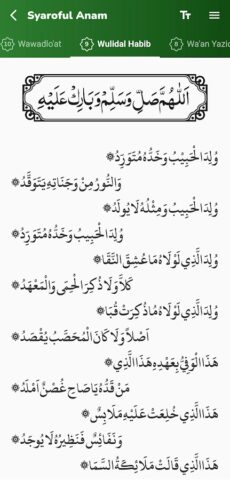 Syaroful Anam
10 Wawadlo'at
9 Wulidal Habib
8 Wa'an Yazid
اَللّٰهُمَّ صَلِّ وَسَلِّمْ وَبَارِكْ عَلَيْهِ
وُلِدَ الْحَبِيْبُ وَخَدُّهُ مُتَوَرِّدُ ۞
وَالنُّوْرُ مِنْ وَجَنَاتِهِ يَتَوَقَّدُ ۞
وُلِدَ الْحَبِيْبُ وَمِثْلُهُ لَا يُوْلَدُ ۞
وُلِدَ الْحَبِيْبُ وَخَدُّهُ مُتَوَرِّدُ ۞
وُلِدَ الَّذِي لَوْلَاهُ مَا عُشِقَ النَّقَا ۞
كَلَّا وَلَا ذُكِرَ الْحِمَى وَالْمَعْهَدُ ۞
وُلِدَ الَّذِي لَوْلَاهُ مَا ذُكِرَتْ قُبَا ۞
اَصْلًا وَلَا كَانَ الْمُحَصَّبُ يُقْصَدُ ۞
هَذَا الْوَفِيُّ بِعَهْدِهِ هَذَا الَّذِي ۞
مَنْ قَدُّهُ يَا صَاحِ غُصْنٌ اَمْلَدُ ۞
هَذَا الَّذِي خُلِعَتْ عَلَيْهِ مَلَابِسٌ ۞
وَنَفَائِسٌ فَنَظِيْرُهُ لَا يُوْجَدُ ۞
هَذَا الَّذِي قَالَتْ مَلَائِكَةُ السَّمَا ۞